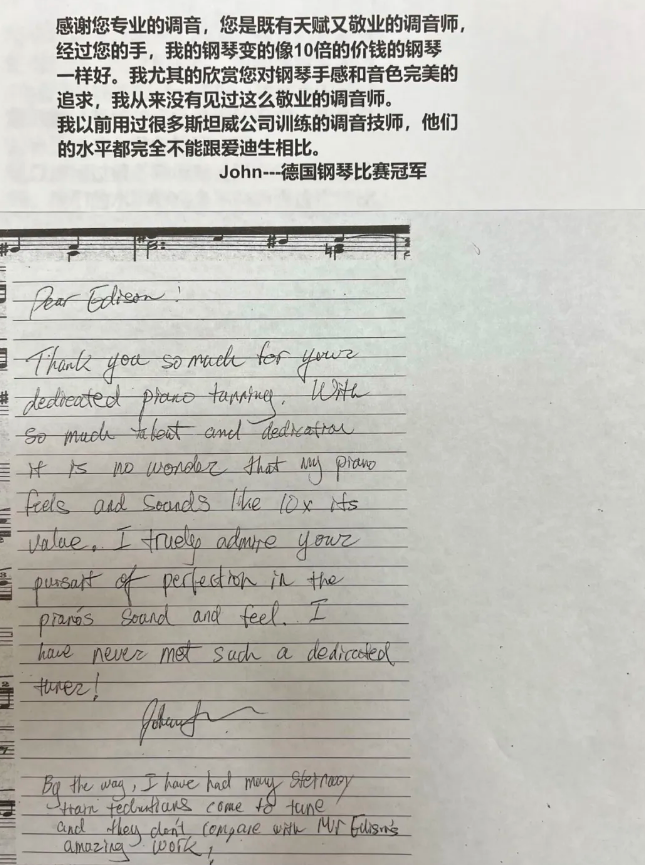 感谢您专业的调音，您是既有天赋又敬业的调音师，
经过您的手，我的钢琴变的像10倍的价钱的钢琴
一样好。我尤其的欣赏您对钢琴手感和音色完美的
追求，我从来没有见过这么敬业的调音师。
我以前用过很多斯坦威公司训练的调音技师，他们
的水平都完全不能跟爱迪生相比。
John---德国钢琴比赛冠军
Dear Edison!
Thank you so much for your
dedicated piano tunning. With
so much talent and dedication
it is no wonder that my piano
feels and sounds like 10x its
value. I truely admire your
pursuit of perfection in the
piano's sound and feel. I
have never met such a dedicated
tuner!
By the way, I have had many
train come to tune
and they don't compare with Mr Edison's
amazing work!